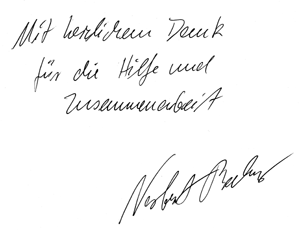 Mit herzlichem Dank
für die Hilfe und
Zusammenarbeit
Norbert